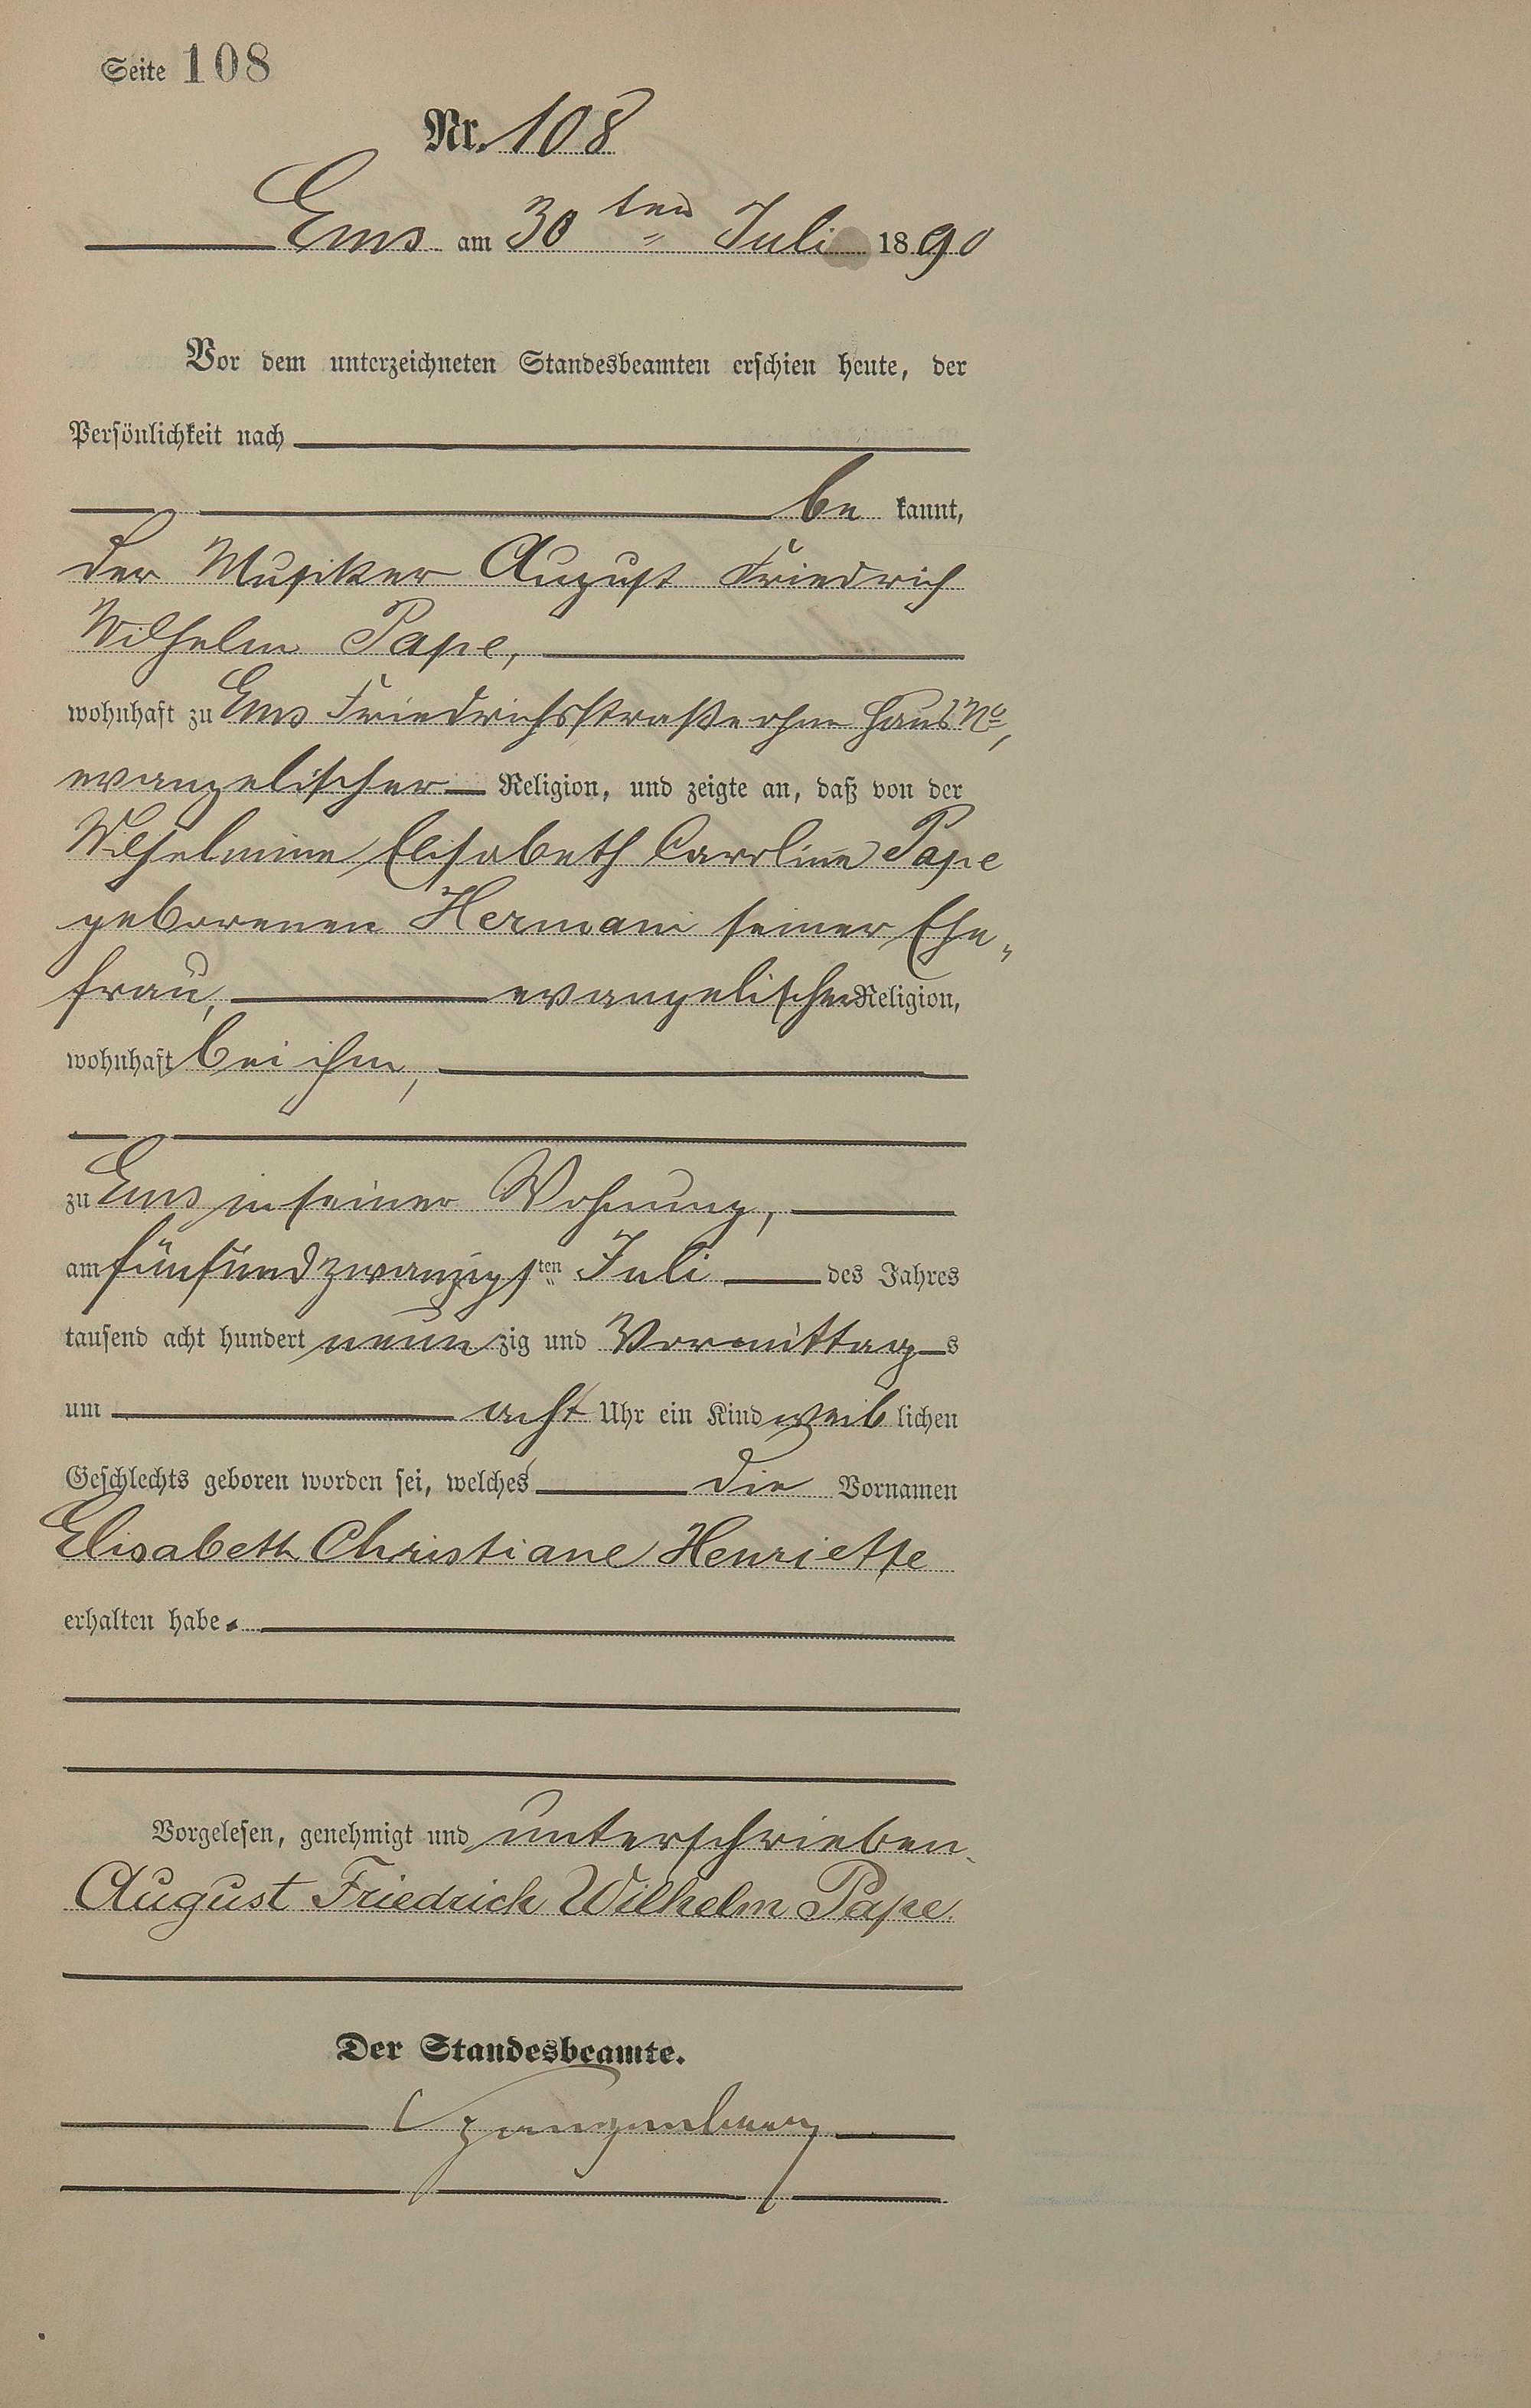 Seite 108
Nr. 108
Ems am 30ten Juli 1890
Vor dem unterzeichneten Standesbeamten erschien heute, der
Persönlichkeit nach
be kannt,
der Musiker August Friedrich
Wilhelm Pape,
wohnhaft zu Ems Friedrichsstraße ohne Haus No,
evangelischer Religion, und zeigte an, daß von der
Wilhelmine Elisabeth Caroline Pape
geborenen Hermani seiner Ehe„
frau, evangelischer Religion,
wohnhaft bei ihm,
zu Ems in seiner Wohnung,
am fünfundzwanzigsten Juli des Jahres
tausend acht hundert neun zig und Vormittag s
um acht Uhr ein Kind weib lichen
Geschlechts geboren worden sei, welches die Vornamen
Elisabeth Christiane Henriette
erhalten habe.
Vorgelesen, genehmigt und unterschrieben.
August Friedrich Wilhelm Pape.
Der Standesbeamte.